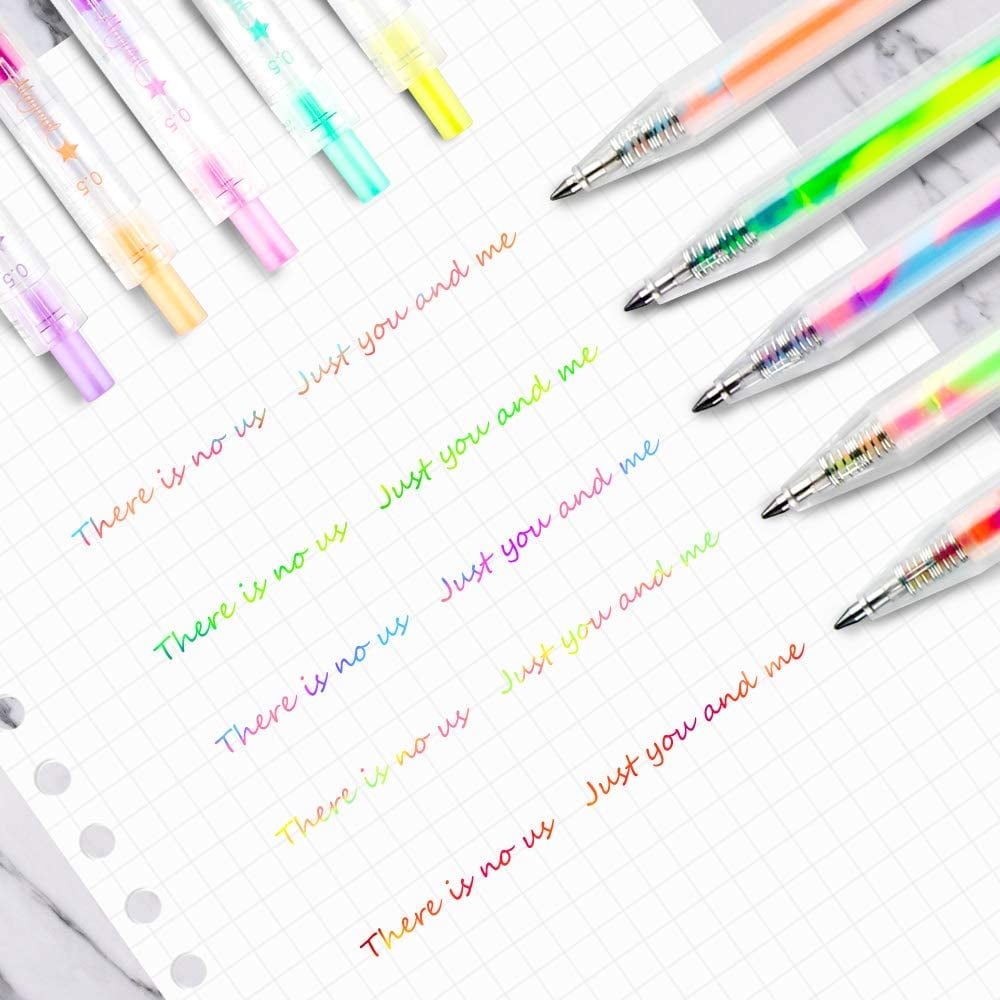 0.5
0.5
0.5
0.5
There is no us Just you and me
There is no us Just you and me
There is no us Just you and me
There is no us Just you and me
There is no us Just you and me